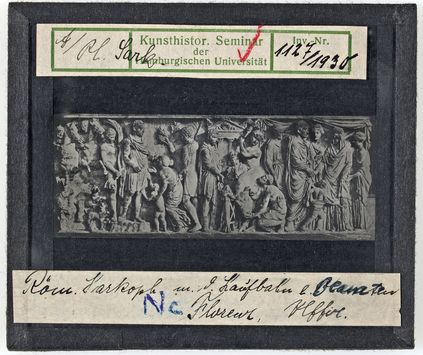 A/Pl. Sark.
Kunsthistor. Seminar
der
Hamburgischen Universität
Inv.-Nr.
1127/1930
Röm. Sarkoph. m. d. Laufbahn e. Beamten
Nc Florenz. Uffiz.